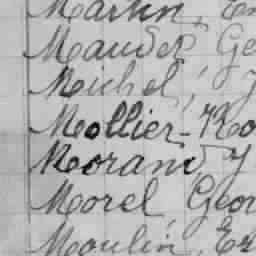 Martin, Em
Maudet Ge
Michel, J
Mollier-Ro
Morand J
Morel Geor
Moulin, Er